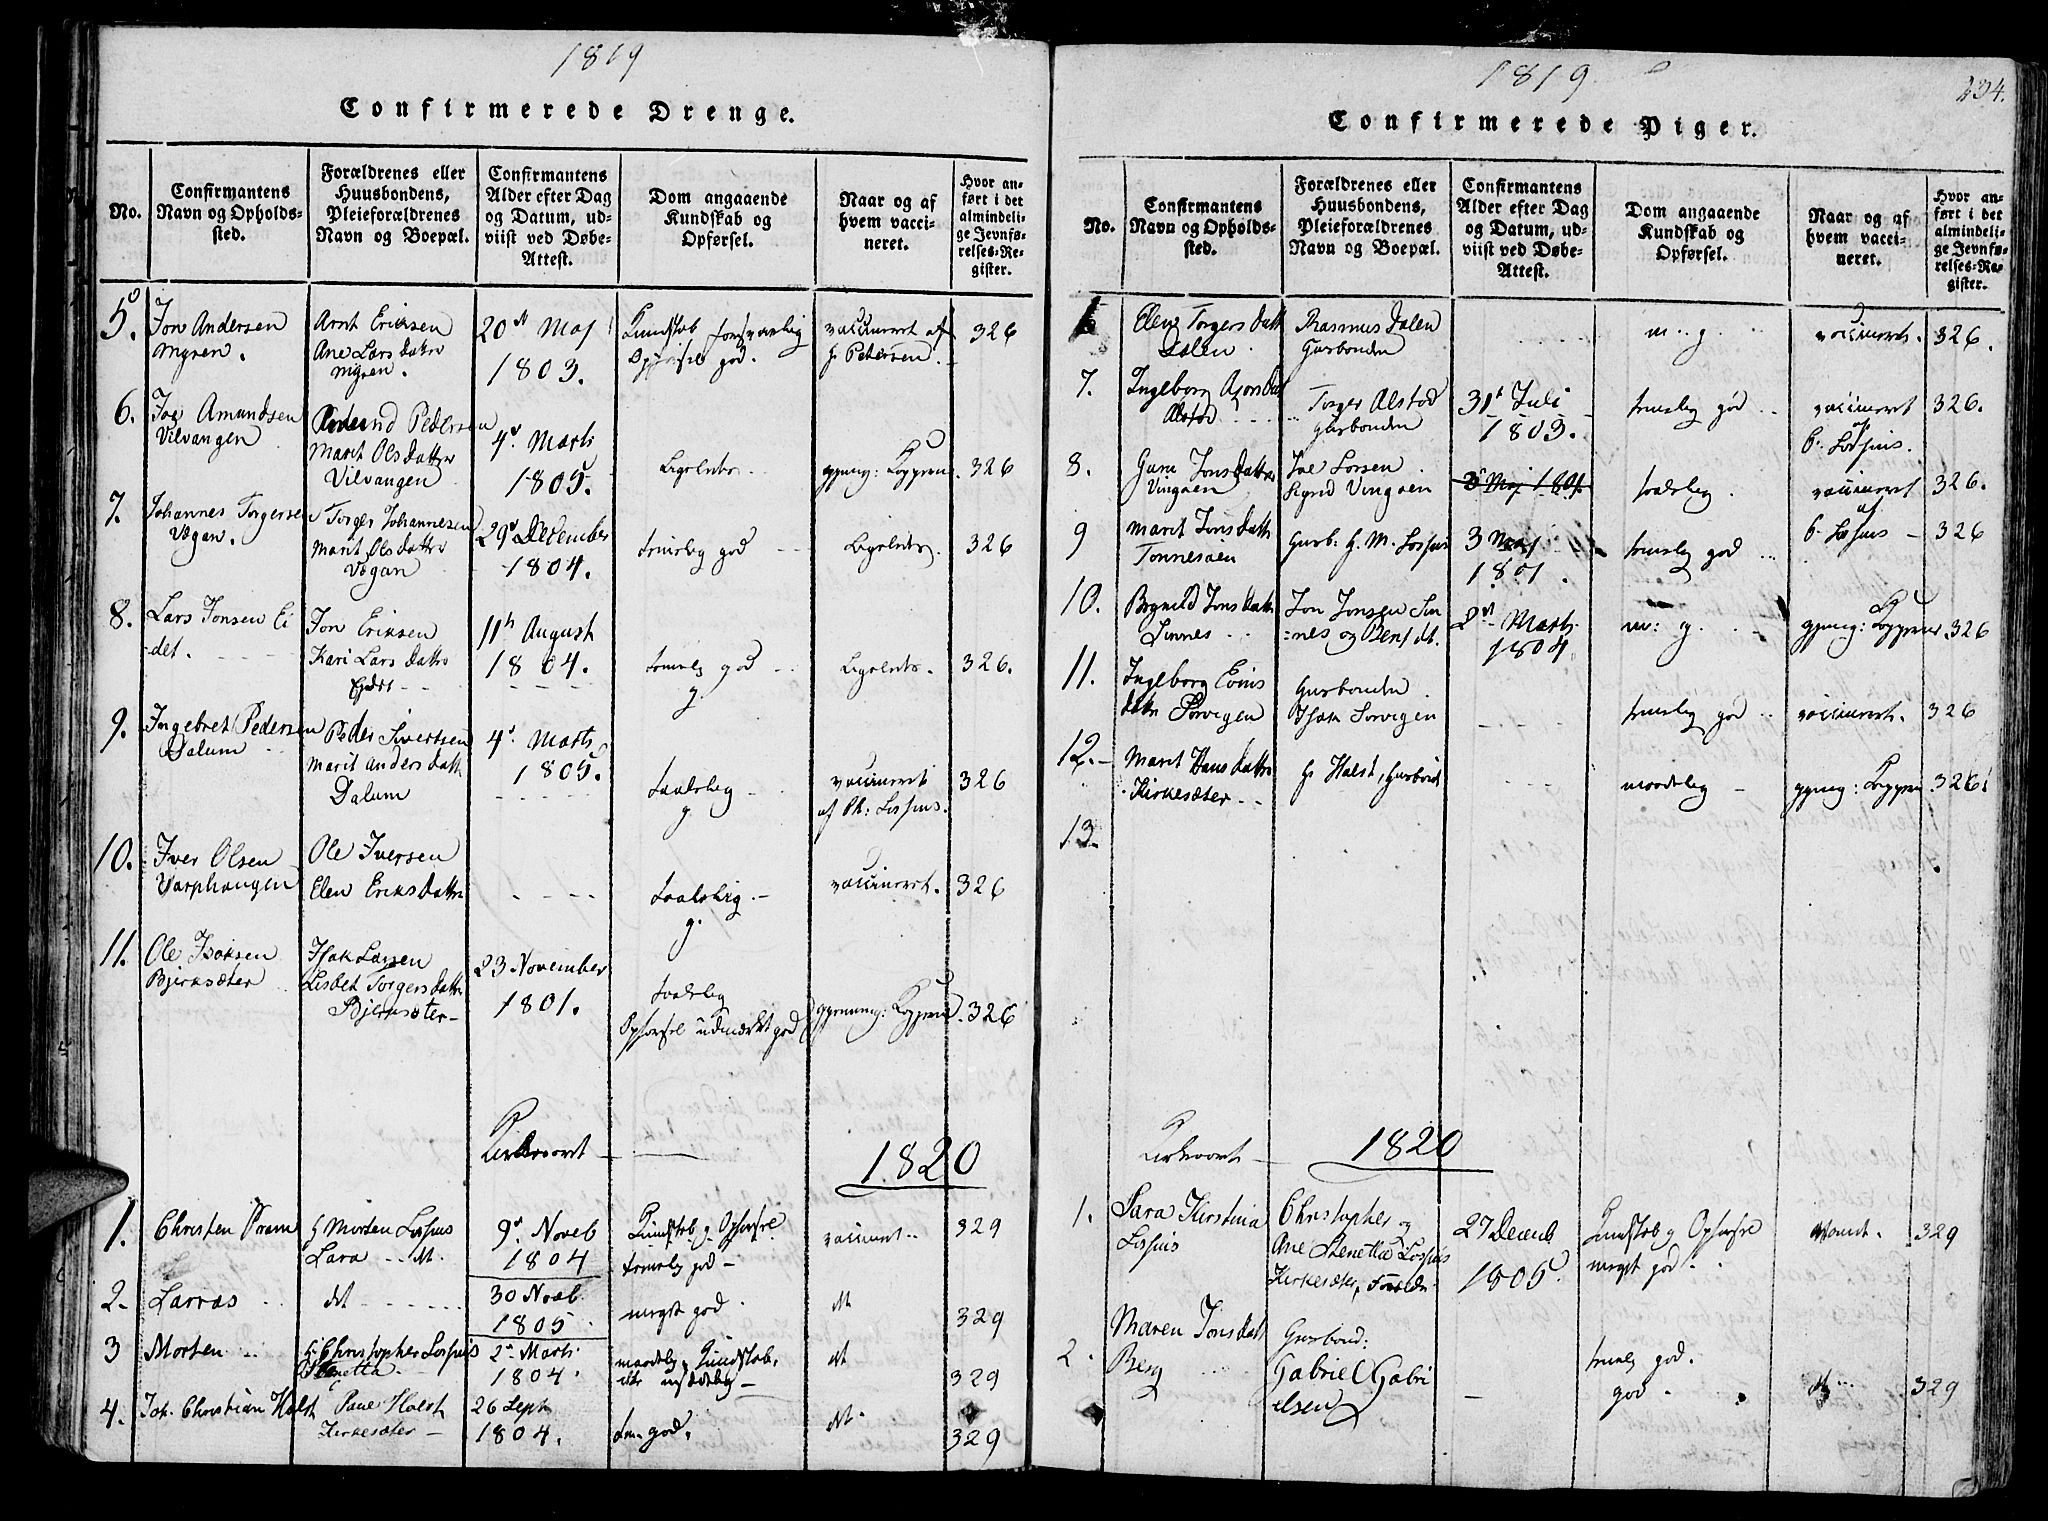 1819
Confirmerede Drenge.
No.
Confirmantens
Navn og Opholds-
sted.
Forældrenes eller
Huusbondens,
Pleieforældrenes
Navn og Boepæl.
Confirmantens
Alder efter Dag
og Datum, ud-
viist ved Døbe-
Attest.
Dom angaaende
Kundskab og
Opførsel.
Naar og af
hvem vacci-
neret.
Hvor an-
ført i det
almindeli-
ge Jevnfø-
relses-Re-
gister.
5.
Jon Andersen
Myren.
Arnt Eriksen
Ane Lars datter
Myren.
20de Maj
1803.
Kundskab forsvarlig
Opførsel god.
vaccineret af
hr Petersen.
326
6.
Joe Amundsen
Vilvangen
Amund Pedersen
Marit Olsdatter
Vilvangen
4de Marts
1805.
Ligeledes
326
7.
Johannes Torgersen
Vogan.
Torger Johannesen
Marit Olsdatter
Vogan
29de December
1804.
temelig god
Ligeledes.
326
8.
Lars Jonsen Ei
det.
Jon Eriksen
Kari Lars datter
11te August
1804.
temelig god
g
Ligeledes.
326.
9.
Ingebret Pedersen
Dalum
Peder Sivertsen
Marit Anders datter
Dalum
4de Marts
1805.
taalelig
g.
vaccineret
af Pr: Lossius.
326
10.
Iver Olsen
Varphaugen
Ole Iversen
Elen Eriks datter
taalelig
g.
vaccineret.
326
11.
Ole Isaksen
Bjerksæter
Isak Larsen
Lisbet Torgersdatter
Bjerksæter
23 November
1801.
taalelig
Opførsel udmærket god
326
1820
1.
Christen Pram
H Morten Lossius
Lara .. dt.
9de Noveb
1804
Kundskab g Opførsel
temelig god
vaccineret
329
2.
Larvas
det
30 Noveb
1805.
meget god
dt
329
3
Morten
H: Christopher Lossius
Stenetta.
2den Marts
1804.
maadelig Kundskab,
dt
329
4.
Joh. Christian Holst
Paul Holst
Kirkesæter
26 Sept
1804.
tem god.
dt.
329
1819
234.
Confirmerede Piger.
No.
Confirmantens
Navn og Opholds-
sted.
Forældrenes eller
Huusbondens,
Pleieforældrenes
Navn og Boepæl.
Confirmantens
Alder efter Dag
og Datum, ud-
viist ved Døbe-
Attest.
Dom angaaende
Kundskab og
Opførsel.
Naar og af
hvem vacci-
neret.
Hvor an-
ført i det
almindeli-
ge Jevnfø-
relses-Re-
gister.
Elen Torgers datt
Dalen
Rasmus Dalen
Husbonden
m .. g.
vaccineret.
326.
7.
Ingeborg
Alstad
Torger Alstad
Husbonden
31te Juli
1803.
temelig god
vaccineret
af
hr. Lossius.
326.
8.
Guru Jonsdatter
Vingaen
Joe Larsen
Sigrid Vingaen
3de Maj 1801.
taalelig.
vaccineret
af
hr. Lossius
326.
9
Marit Jonsdatter
Tonnesaen
Husb. H. M. Lossius
3 Maj
1801.
temelig god
326
10.
Bognild Jonsdatter
Sinnes
Jon Jonsen Sin
=nes og Beret dt.
2den Marts
1804
m: g.
326
11.
Ingeborg
datter Sorvigen
Husbonden
Isak Sorvigen
temelig god
vaccineret.
326
12.
Marit Hans datter
Kirkesæter
Hr Holst, Husbond
maadelig
326
13.
1820
1.
Sara Kirstina
Lossius
Christopher og
Ane Stenetta Lossius
Kirkesæter, Forældre
27 Decemb
1805.
Kundskab g Opførsel
meget god
329
2.
Maren Jonsdatt
Berg
Husbond:
Gabriel Gabri
elsen
temelig god.
god
dt
329